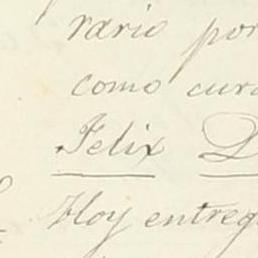 rario por
como cura
Felix D
Hoy entreg